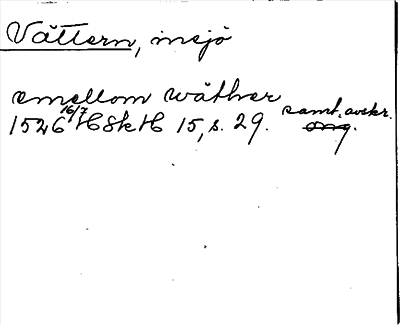 Vättern, insjö
emellom Wäther
1526 16/7 HSkH 15, s. 29. samt. avskr.